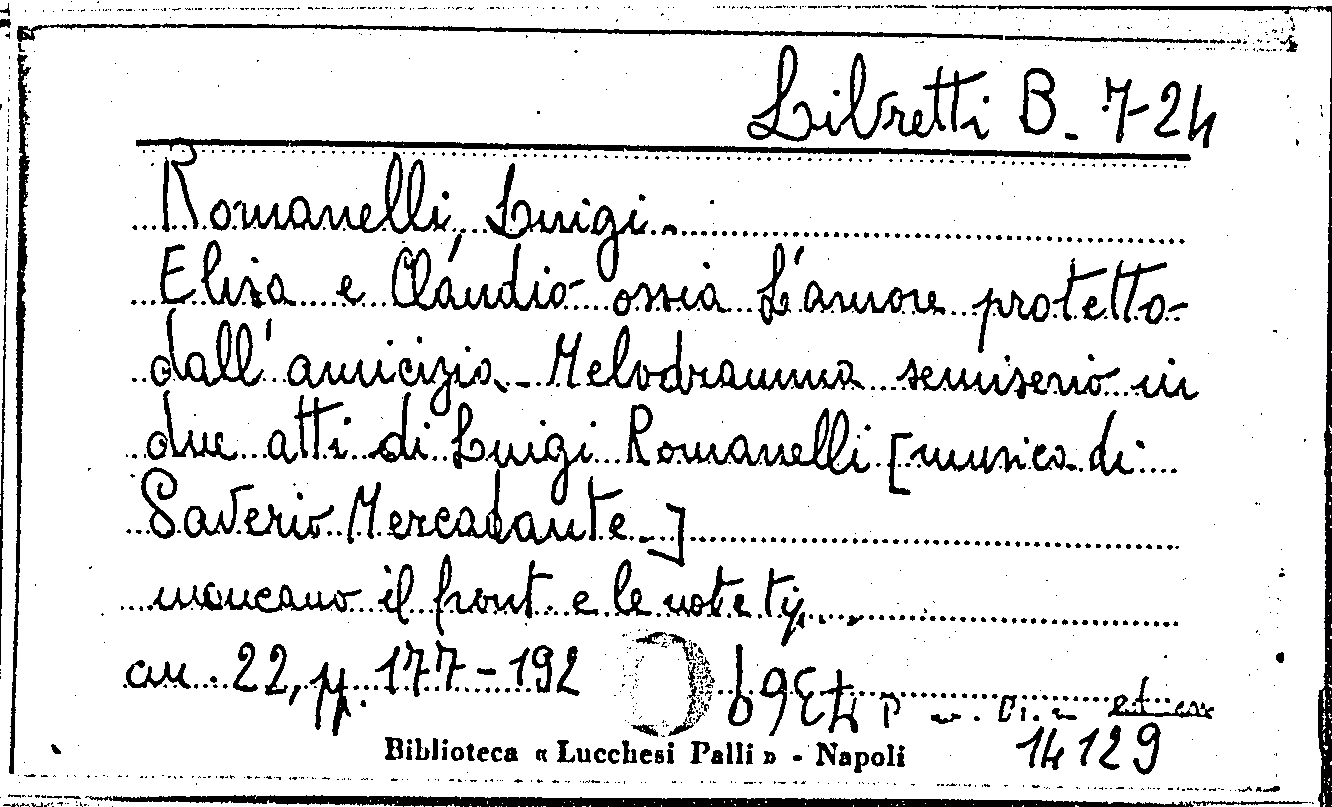 Libretti B. 7-24
Romanelli, Luigi.
Elisa e Claudio ossia L'amore protetto
dall'amicizia. Melodramma semiserio in
due atti di Luigi Romanelli [musica di
Saverio Mercadante.]
mancano il front e le note tip.
cm. 22, pp. 177-192
14129
Biblioteca « Lucchesi Palli » - Napoli